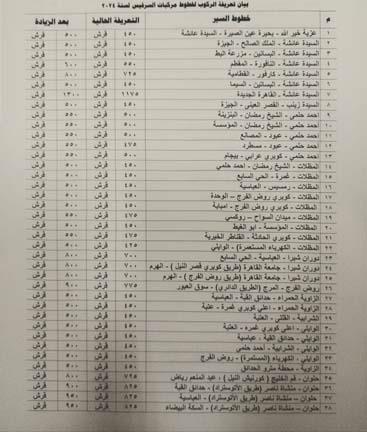 بيان تعريفة الركوب لخطوط مركبات السرفيس لسنة ٢٠٢٤
م خطوط السير التعريفة الحالية بعد الزيادة
١ عزبة خير الله - بحيرة عين الصيرة - السيدة عائشة ٤٥٠ قرش ٥٠٠ قرش
٢ السيدة عائشة - الملك الصالح - الجيزة ٤٥٠ قرش ٥٠٠ قرش
٣ السيدة عائشة - البساتين - مزرعة البط ٤٥٠ قرش ٥٠٠ قرش
٤ السيدة عائشة - النافورة - المقطم ٥٥٠ قرش ٦٠٠ قرش
٥ السيدة عائشة - كارفور - القطامية ٧٢٥ قرش ٨٠٠ قرش
٦ السيدة عائشة - البساتين - السيما ٤٥٠ قرش ٥٠٠ قرش
٧ السيدة عائشة - القاهرة الجديدة ١١٧٥ قرش ١٣٠٠ قرش
٨ السيدة زينب - القصر العيني - الجيزة ٤٥٠ قرش ٥٠٠ قرش
٩ احمد حلمي - الشيخ رمضان - البنزينة ٥٠٠ قرش ٥٥٠ قرش
١٠ احمد حلمي - الشيخ رمضان - المؤسسة ٥٠٠ قرش ٥٥٠ قرش
١١ احمد حلمي - عبود - المصانع ٥٠٠ قرش ٥٥٠ قرش
١٢ احمد حلمي - عبود - مسطرد ٤٧٥ قرش ٥٥٠ قرش
١٣ احمد حلمي - كوبري عرابي - بيجام ٥٠٠ قرش ٥٥٠ قرش
١٤ المظلات - الشيخ رمضان - احمد حلمي ٤٥٠ قرش ٥٠٠ قرش
١٥ المظلات - غمرة - الحي السابع ٤٥٠ قرش ٥٠٠ قرش
١٦ المظلات - رمسيس - العباسية ٤٥٠ قرش ٥٠٠ قرش
١٧ المظلات - كوبري روض الفرج - الوحدة ٤٥٠ قرش ٥٠٠ قرش
١٨ المظلات - كوبري روض الفرج - امبابة ٤٥٠ قرش ٥٠٠ قرش
١٩ المظلات - ميدان السواح - روكسي ٤٧٥ قرش ٥٥٠ قرش
٢٠ المظلات - المؤسسة - ابو الغيط ٤٥٠ قرش ٥٠٠ قرش
٢١ المظلات - كوبري الحادثة - القناطر الخيرية ٤٧٥ قرش ٥٥٠ قرش
٢٢ المظلات - الكهرباء (المستعمرة) - الوايلي ٤٢٥ قرش ٥٠٠ قرش
٢٣ دوران شبرا - العباسية - الحي السابع ٧٠٠ قرش ٨٠٠ قرش
٢٤ دوران شبرا - جامعة القاهرة (طريق كوبري قصر النيل) - الهرم ٧٠٠ قرش ٨٠٠ قرش
٢٥ دوران شبرا - جامعة القاهرة (طريق روض الفرج) - الهرم ٧٠٠ قرش ٨٠٠ قرش
٢٦ روض الفرج - المرج (الطريق الدائري) - سوق العبور ٧٧٥ قرش ٩٠٠ قرش
٢٧ الزاوية الحمراء - حدائق القبة - العباسية ٤٥٠ قرش ٥٠٠ قرش
٢٨ الزاوية الحمراء - اعلي كوبري غمرة - عتبة ٤٥٠ قرش ٥٠٠ قرش
٢٩ الشرابية - القللي - العتبة ٤٥٠ قرش ٥٠٠ قرش
٣٠ الوايلي - اعلي كوبري غمره - العتبة ٤٥٠ قرش ٥٠٠ قرش
٣١ الوايلي - حدائق القبة - عباسية ٤٥٠ قرش ٥٠٠ قرش
٣٢ الوايلي - الشرابية - أحمد حلمي ٤٥٠ قرش ٥٠٠ قرش
٣٣ الوايلي - الكهرباء (المستعمرة) - روض الفرج ٤٥٠ قرش ٥٠٠ قرش
٣٤ الزاوية - محطة مترو الحدائق ٤٥٠ قرش ٥٠٠ قرش
٣٥ حلوان - فم الخليج (كورنيش النيل) - عبد المنعم رياض ٧٢٥ قرش ٨٠٠ قرش
٣٦ حلوان - منشأة ناصر (طريق الأتوستراد) - حدائق القبة ٨٢٥ قرش ٩٠٠ قرش
٣٧ حلوان - منشأة ناصر (طريق الأتوستراد) - العباسية ٨٢٥ قرش ٩٥٠ قرش
٣٨ حلوان - منشأة ناصر (طريق الأتوستراد) - السكة البيضاء ٨٢٥ قرش ٩٥٠ قرش